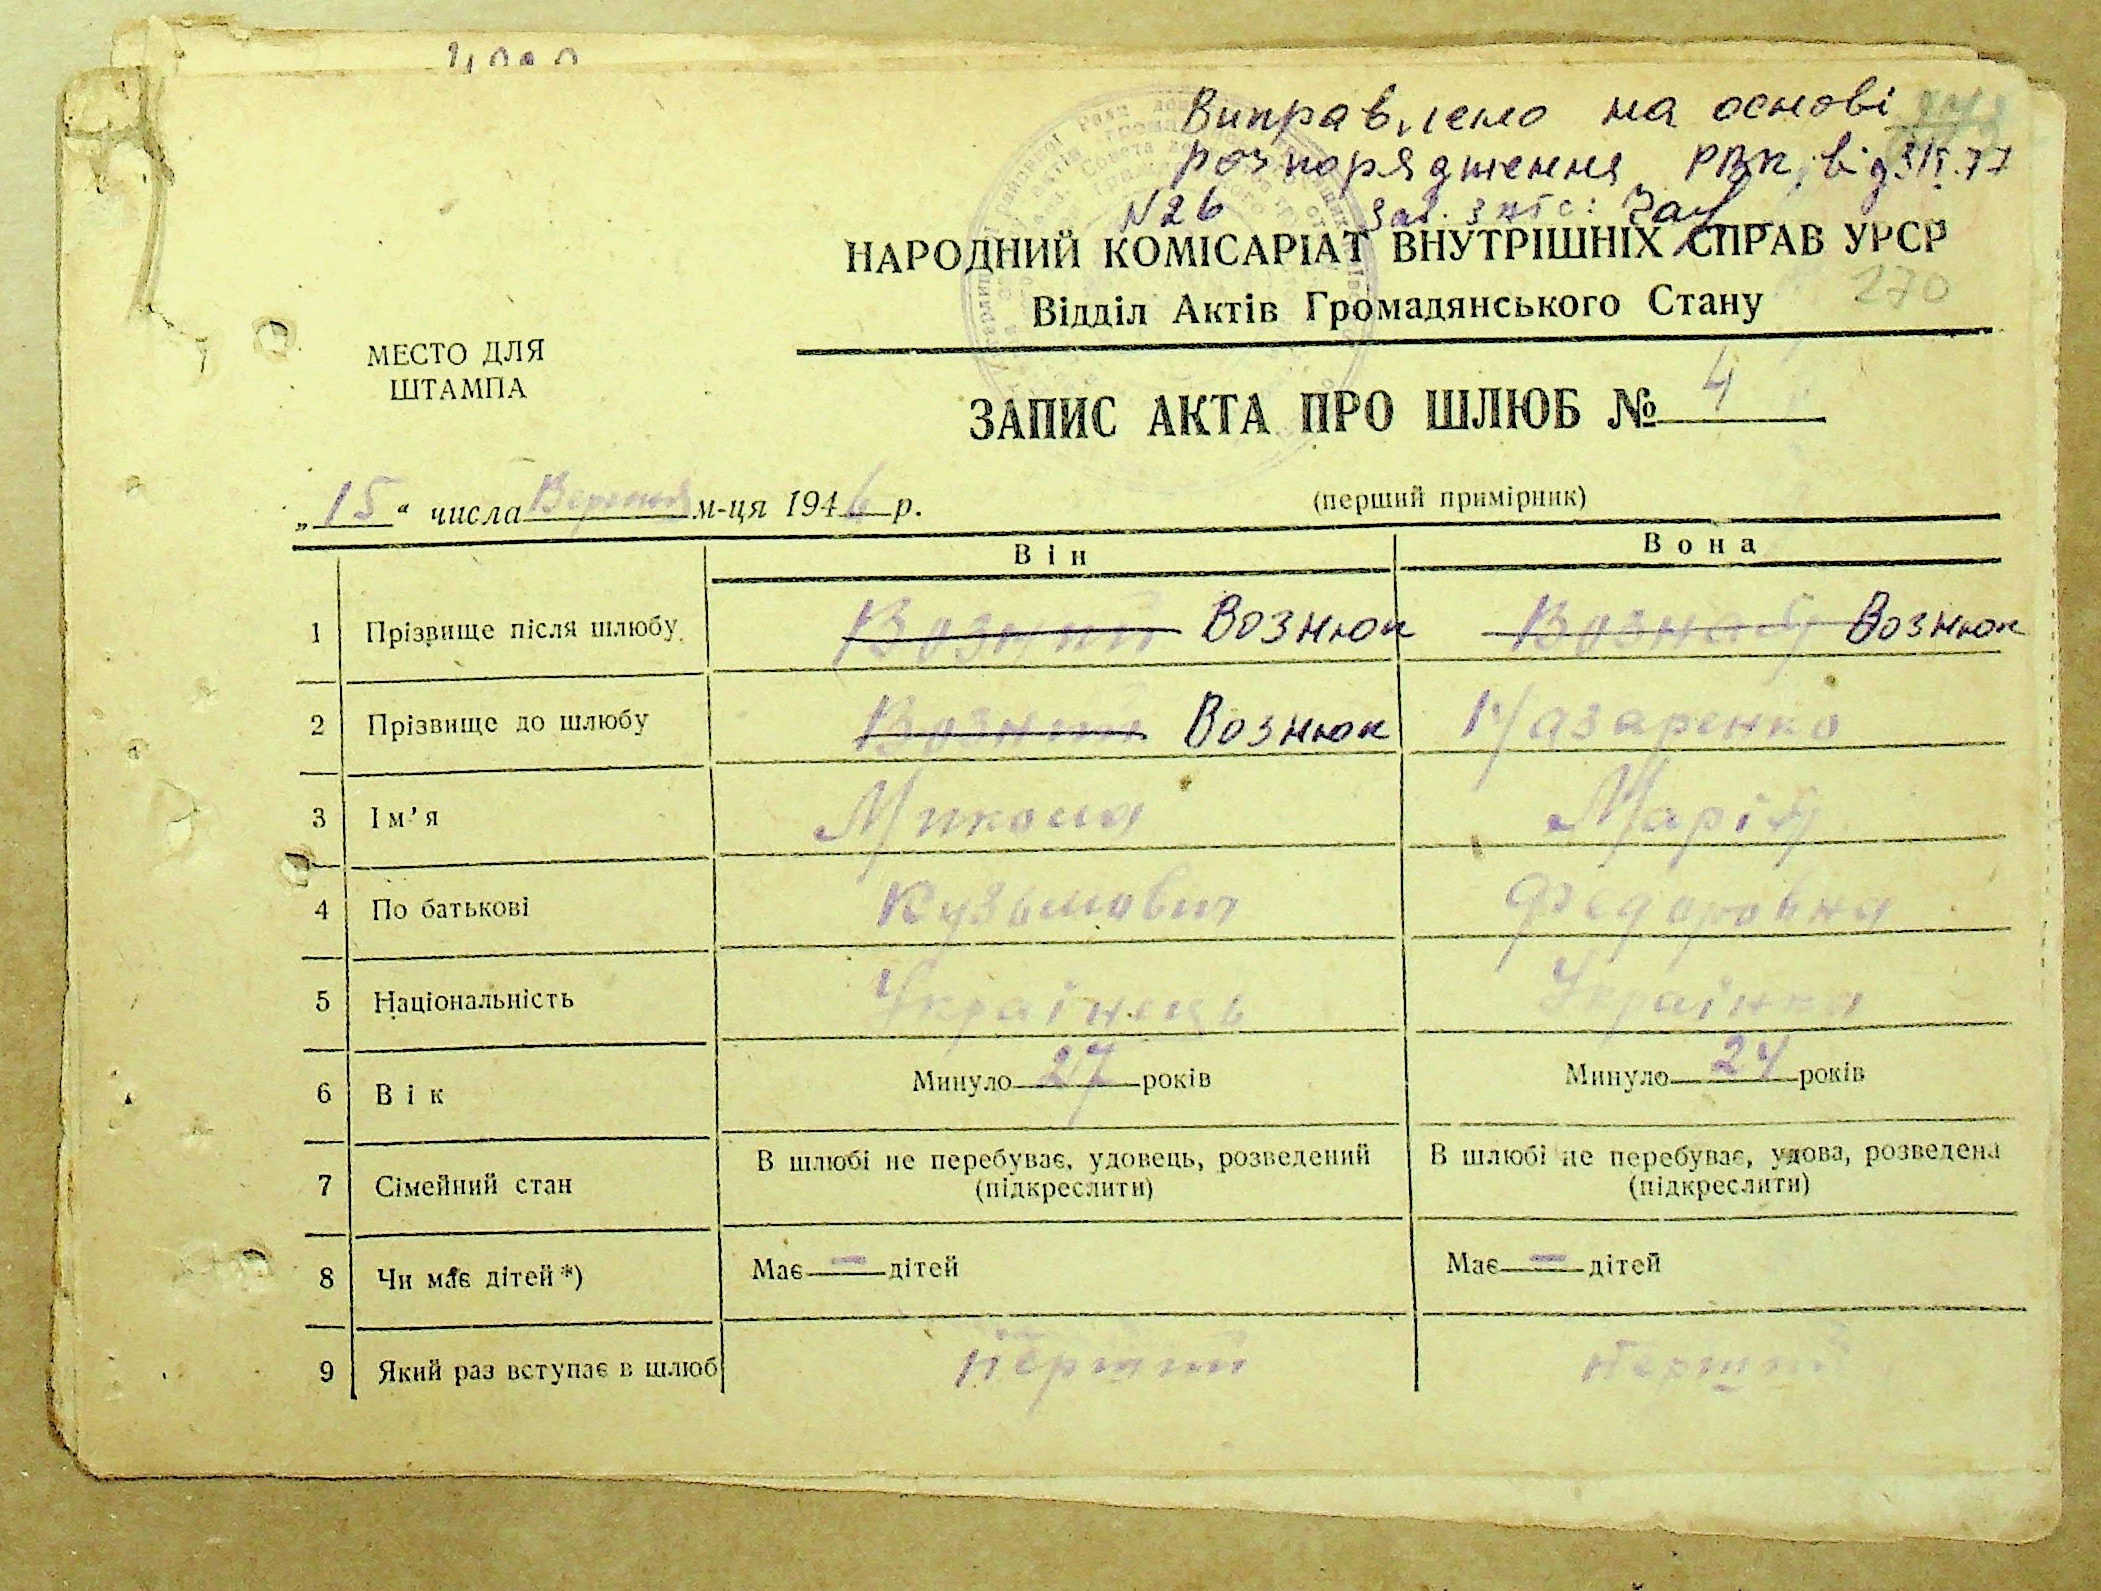 Виправлено на основі
розпорядження РВК, від
N 26 Зав. загс:
НАРОДНИЙ КОМІСАРІАТ ВНУТРІШНІХ СПРАВ УРСР
Відділ Актів Громадянського Стану
270
МЕСТО ДЛЯ
ШТАМПА
ЗАПИС АКТА ПРО ШЛЮБ № 4
„15“ числа Вересня м-ця 1946 р.
(перший примірник)
Він Вона
1 Прізвище після шлюбу Возний Вознюк Возная Вознюк
2 Прізвище до шлюбу Возний Вознюк Назаренко
3 Ім’я Микола Марія
4 По батькові Кузьмович Федоровна
5 Національність Українець Українка
6 Вік Минуло 27 років Минуло 24 років
7 Сімейний стан В шлюбі не перебуває, удовець, розведений (підкреслити) В шлюбі не перебуває, удова, розведена (підкреслити)
8 Чи має дітей*) Має — дітей Має — дітей
9 Який раз вступає в шлюб Перший Перший